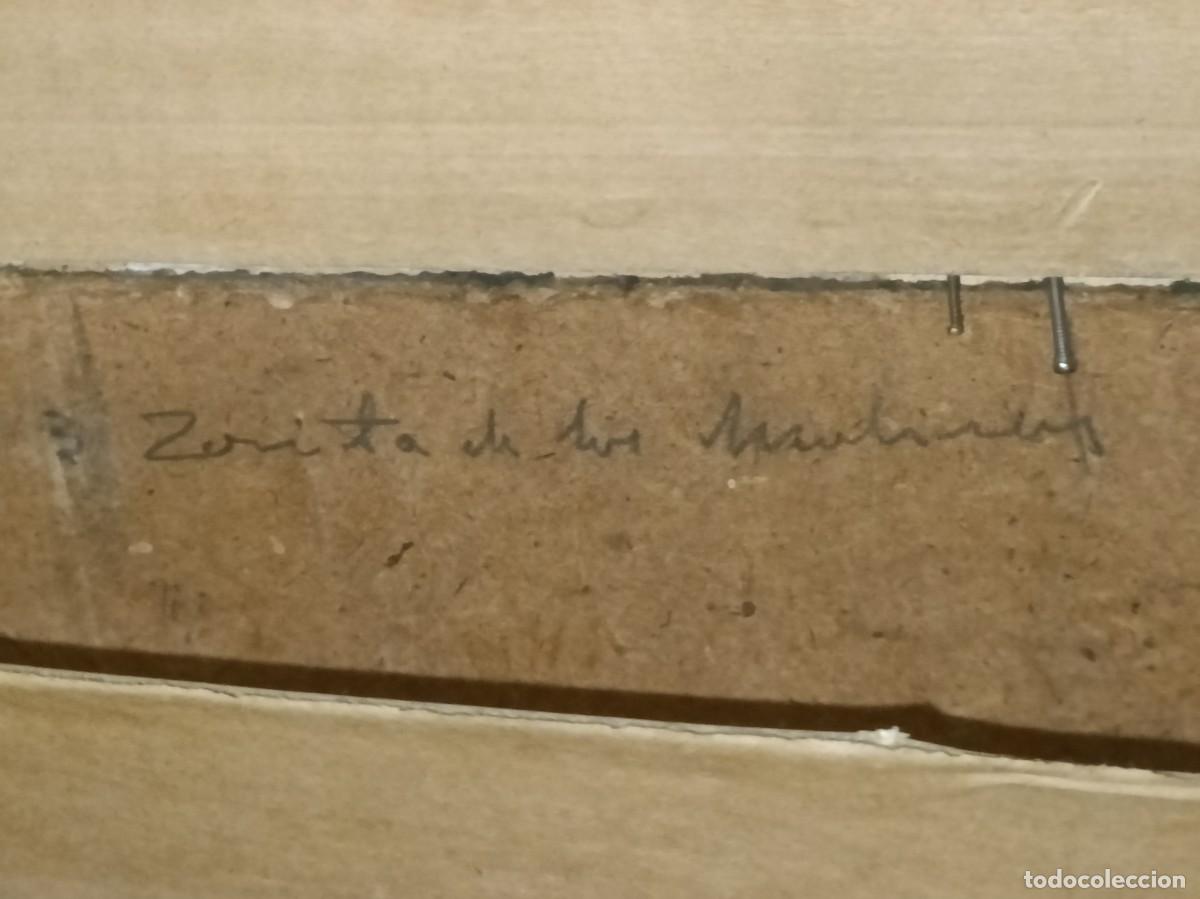 Zorita de los
todocoleccion